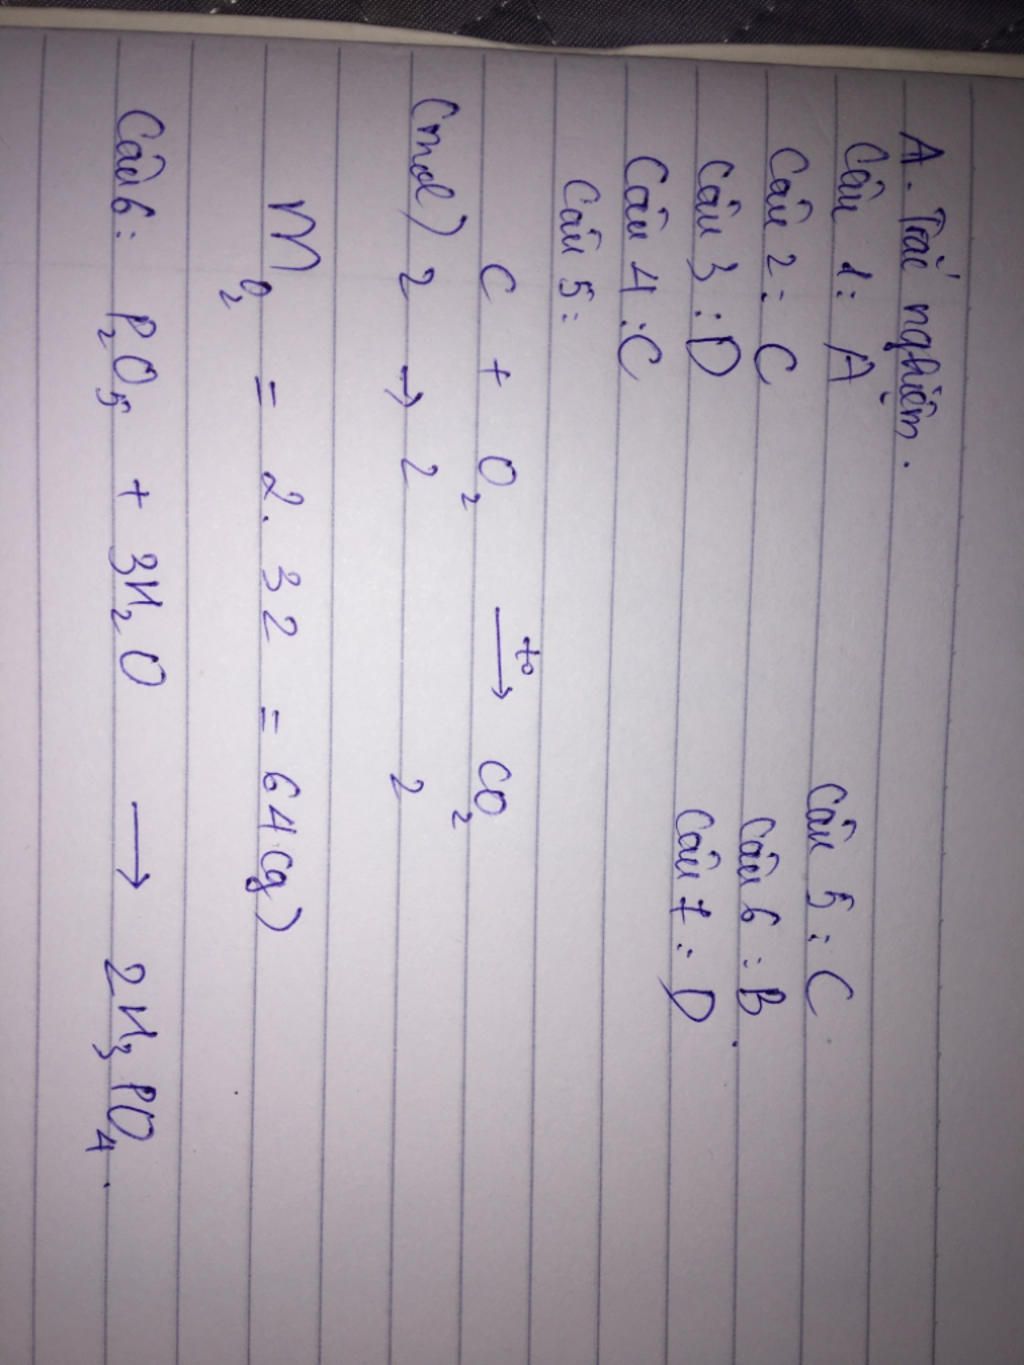 A. Trắc nghiệm.
Câu 1: A Câu 5: C
Câu 2: C Câu 6: B.
Câu 3: D Câu 7: D
Câu 4: C
Câu 5:
C + O₂ —t°→ CO₂
(mol) 2 → 2 2
m O₂ = 2.32 = 64 (g)
Câu 6: P₂O₅ + 3H₂O → 2H₃PO₄.